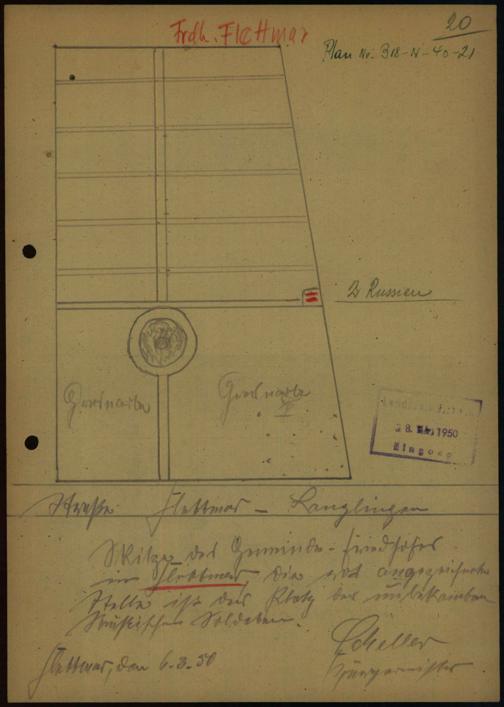 20
Frdh. Flettmar
Plan Nr. 318-N-40-21
2 Russen
Grasnarbe
Grasnarbe
8. 1950
Eingang
Straße Flettmar – Langlingen
Skitze des Gemeinde-Friedhofes
in Flettmar, die rot angezeichnete
Stelle ist der Platz der unbekannten
Russischen Soldaten.
Flettmar, den 6.3.50
Scheller
Bürgermeister